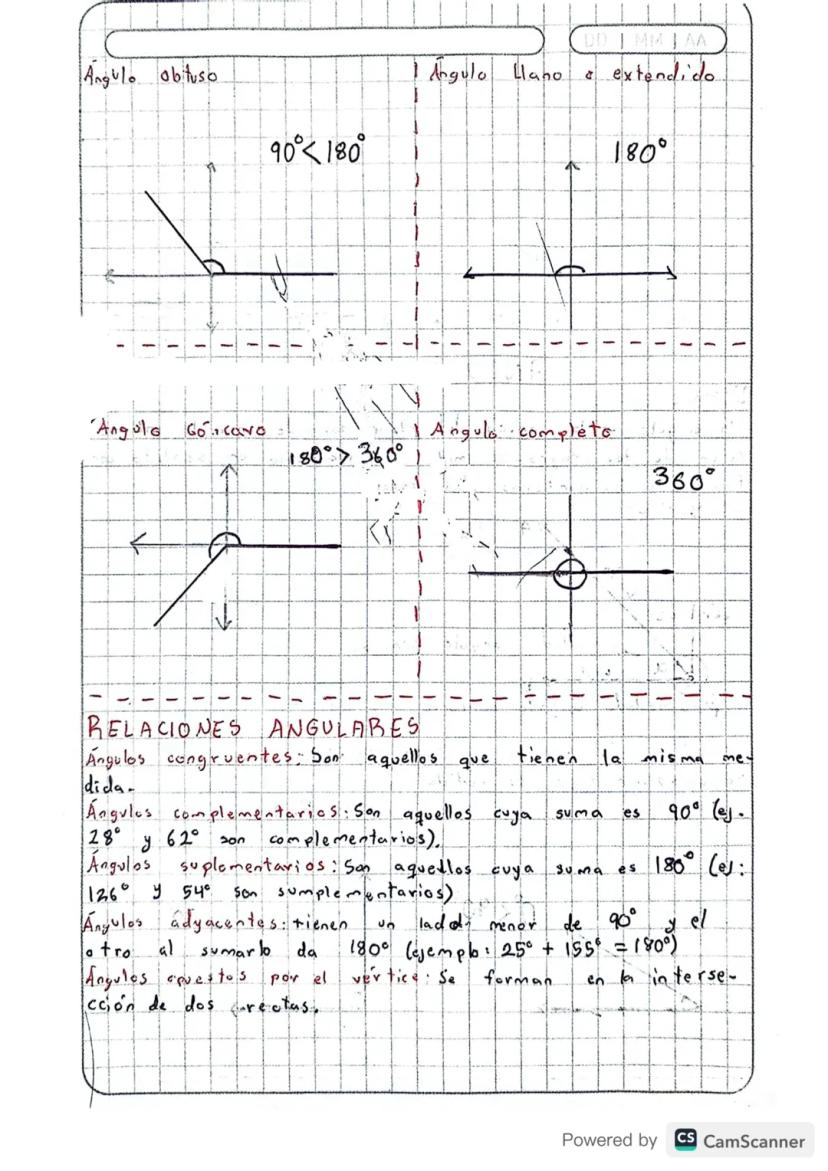 DD | MM | AA
Ángulo obtuso
Ángulo llano o extendido
90°<180°
180°
Ángulo Cóncavo
Angulo completo
180°> 360°
360°
RELACIONES ANGULARES
Ángulos congruentes: Son aquellos que tienen la misma me-
dida.
Ángulos complementarios: Son aquellos cuya suma es 90° (ej.
28° y 62° son complementarios).
Ángulos suplementarios: Son aquellos cuya suma es 180° (ej:
126° y 54° son sumplementarios)
Ángulos adyacentes: tienen un lado menor de 90° y el
otro al sumarlo da 180° (ejemplo: 25° + 155° = 180°)
Ángulos opuestos por el vértice: Se forman en la interse-
cción de dos rectas.
Powered by CS CamScanner